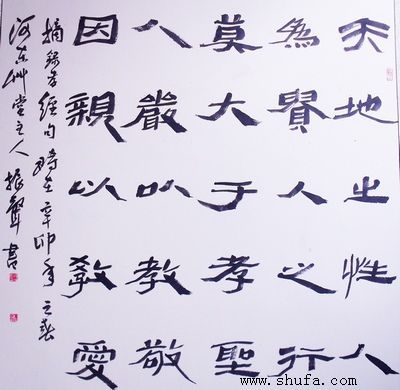 天地之性人
為貴人之行
莫大于孝聖
人嚴以教敬
因親以教愛
摘錄孝經句時在辛卯年之春
河东艸堂主人振聲書
www.shufa.com